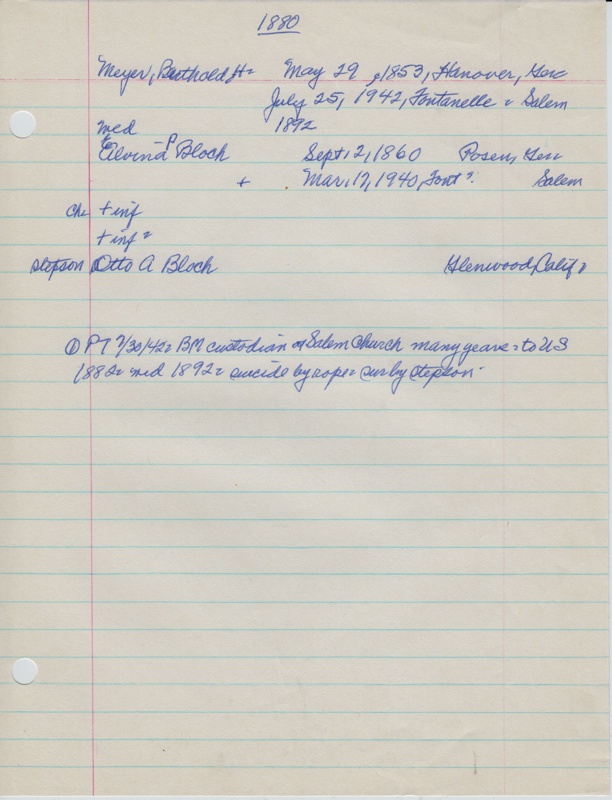 1880
Meyer, Berthold H= May 29, 1853, Hanover, Ger
July 25, 1942, Fontanelle = Salem
med 1892
Elvina P Bloch Sept 12, 1860 Posen, Ger
+ Mar. 17, 1940, Font = Salem
ch + inf
+ inf =
stepson Otto A Bloch Glenwood, Calif =
① PT 7/30/42= BM custodian of Salem Church many years = to US
1882= md 1892= suicide by rope = sur by stepson.